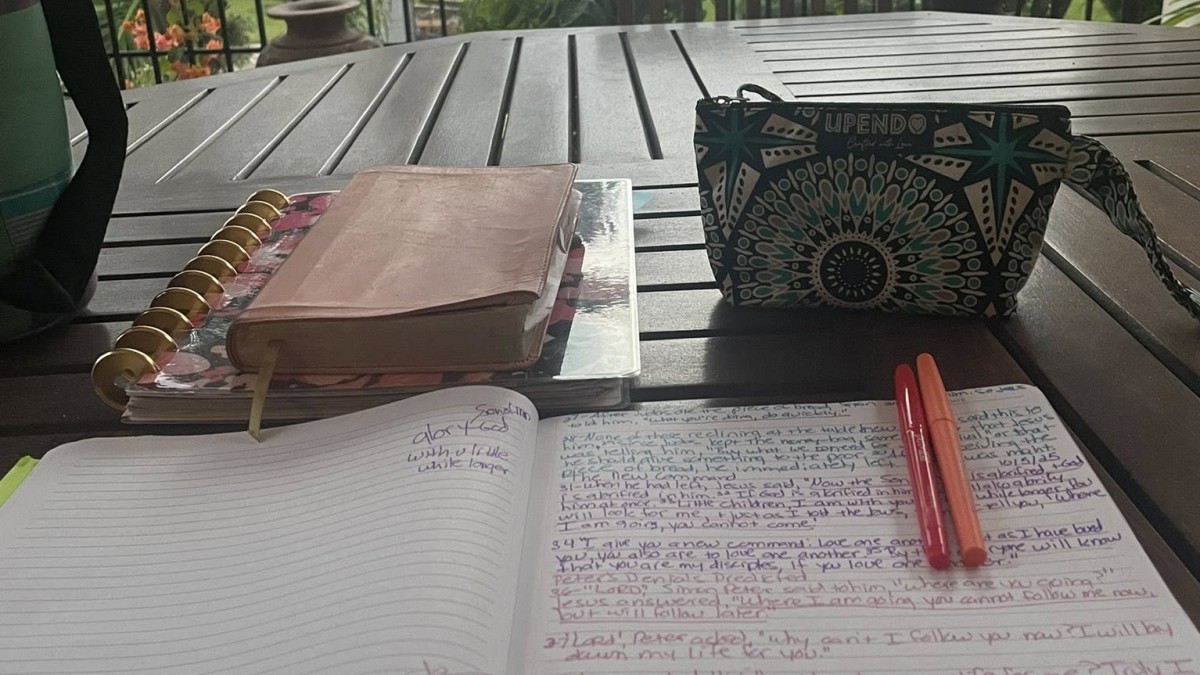 UPENDO
Crafted with Love
Son of Him
glory God
with u little
while longer
27- After Judas ate the piece of bread, Satan
to told him, "what you're doing, do quickly."
28- None of those reclining at the table knew said this to
him, kept the money-bag, some that Jesus
was telling him, "Buy what we need for or that
he should give something to the poor receiving the
piece of bread, he immediately left was night.
The new command 10/5/25
31- when he had left, Jesus said, "Now the Son is glorified, + God
is glorified in him. 32 If God is glorified in him
him at once. Little children, I am with you while longer. You
will look for me, + just as I told the Jews, tell you, "Where
I am going, you cannot come."
34 "I give you a new command: Love one another as I have loved
you, you also are to love one another. 35 By everyone will know
that you are my disciples, if you love one
Peter's Denials Predicted
36- "LORD," Simon Peter said to him, "where are you going?"
Jesus answered, "Where I am going you cannot follow me now,
but will follow later."
37) Lord! Peter asked, "why can't I follow you now? I will lay
down my life for you."
life for me? Truly I